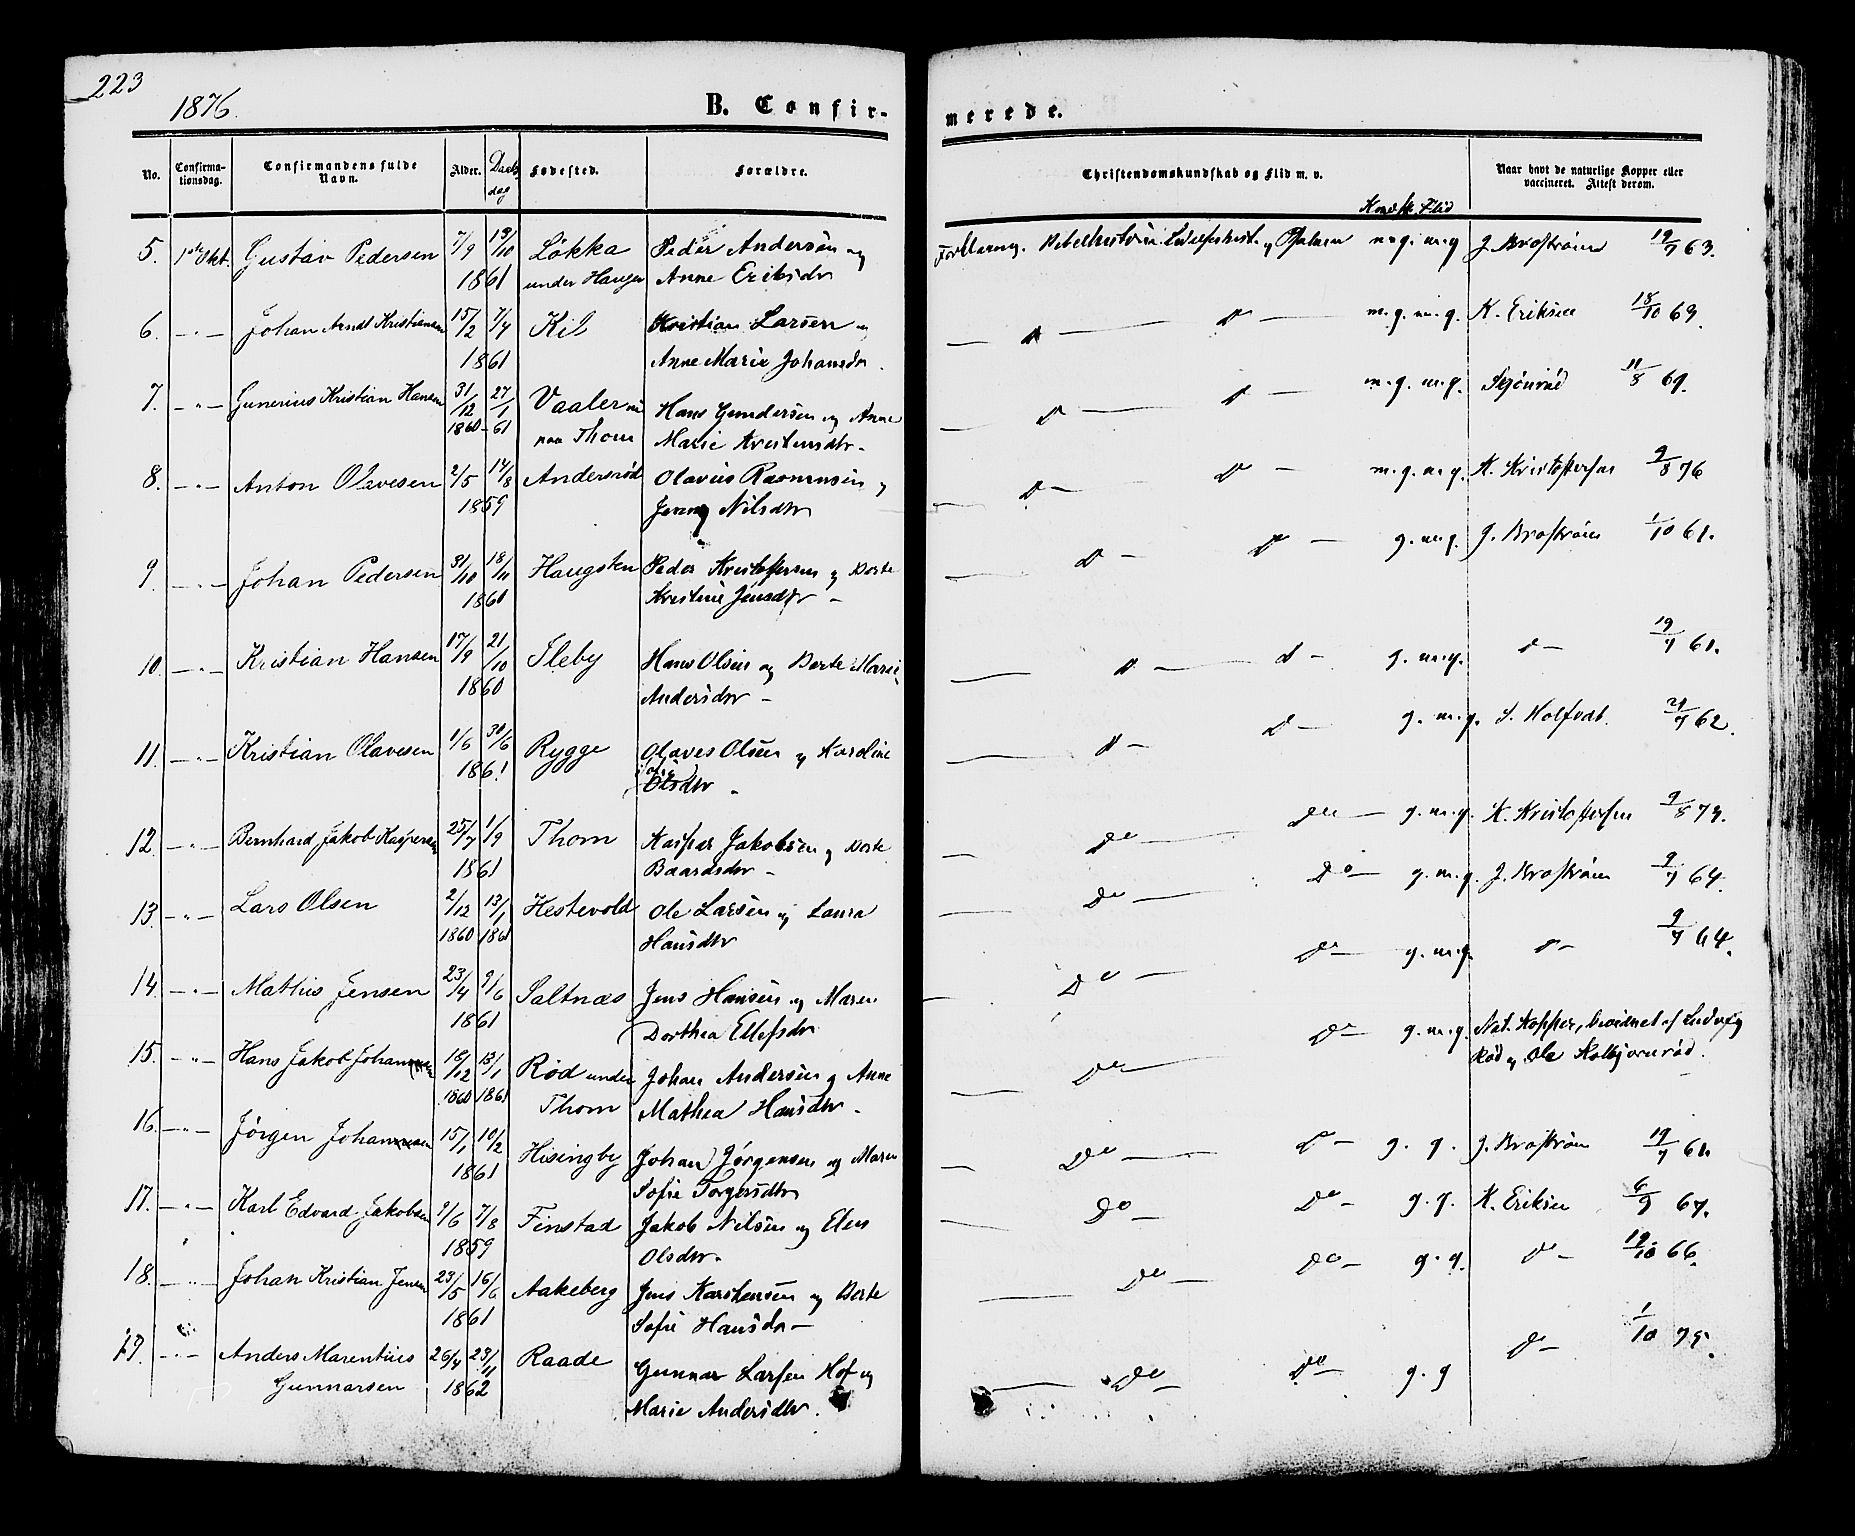 223
1876.
B. Confir-
merede.
No. Confirma-tionsdag. Confirmandens fulde Navn. Alder. Daabsdag Fødested. Forældre. Christendomskundskab og Flid m. v. Naar havt de naturlige Kopper eller vaccineret. Attest derom.
Kundsk. Flid
5. 1ste Okt. Gustav Pedersen 7/9 13/10 Løkka Peder Andersen og Forklaring. Bibelhistorie. Psalmer m.g. m.g J. Brostrøm 19/7 63.
1861 under Haugen Anne Eriksdr
6. -"- Johan Arndt Kristiansen 15/2 7/4 Kil Kristian Larsen og — d — d — m.g. m.g. K. Eriksen 18/10 69.
1861 Anne Marie Johansdr.
7. -"- Gunerius Kristian Hansen 31/12 27/1 Vaaler nu Hans Gundersen og Anne — d — d — m.g. m.g. 11/8 69.
1860-61 paa Thom Marie Kristensdtr.
8. -"- Anton Olavesen 2/5 14/8 Andersrød Olavus Rasmussen og — d — d — m.g. m.g. K. Kristoffersen 9/8 76
1859 Jenny Nilsdtr
9. -"- Johan Pedersen 31/10 18/11 Haugsten Peder Kristoffersen og Dorte — d — d — g. m.g. J. Brostrøm 1/10 61.
1860 Kristine Jensdtr -
10. -"- Kristian Hansen 17/9 21/10 Ileby Hans Olsen og Dorte Marie — d — d - g. m.g. d - 19/7 61.
1860 Andersdtr -
11. -"- Kristian Olavesen 1/6 30/6 Rygge Olaves Olsen og Karoline — d - d - g. m.g. S. Holfodt. 21/7 62.
1861 Olsdtr -
12. -"- Bernhard Jakob Kaspersen 25/7 1/9 Thom Kasper Jakobsen og Dorte — do — do — g. m.g. K. Kristoffersen 9/8 73.
1861 Baardsdtr -
13. -"- Lars Olsen 2/12 13/1 Hestevold Ole Larsen og Laura — Do — Do - g. m.g. J. Brostrøm 9/7 64.
1860 1861 Hansdtr
14. -"- Mathis Jensen 23/4 9/6 Saltnæs Jens Hansen og Maren — Do — Do - g. m.g. d - 9/7 64.
1861 Dorthea Ellefsdr
15. -"- Hans Jakob Johansen 16/12 13/1 Rød under Johan Andersen og Anne — Do — Do - g. m.g. Nat. Kopper, bevidnet af Ludvig
1860 1861 Thom Mathea Hansdtr. Rød og Ole Kolbjørnrød.
16. -"- Jørgen Johannesen 15/1 10/2 Hisingby Johan Jørgensen og Maren — Do — d - g. g. J. Brostrøm 19/7 61.
1861 Sofie Torgersdtr
17. -"- Karl Edvard Jakobsen 9/6 7/8 Finstad Jakob Nilsen og Elen — Do - Do - g. g. K. Eriksen 6/9 67.
1859 Olsdtr.
18. -"- Johan Kristian Jensen 23/5 16/6 Aakeberg Jens Karstensen og Dorte — Do — Do - g. g. D - 19/10 66.
1861 Sofie Hansdr -
19. -"- Anders Marentius 26/4 23/11 Raade Gunnar Larsen Hof og — Do - Do - g. g D - 1/10 75.
Gunnarsen 1862 Marie Andersdtr.